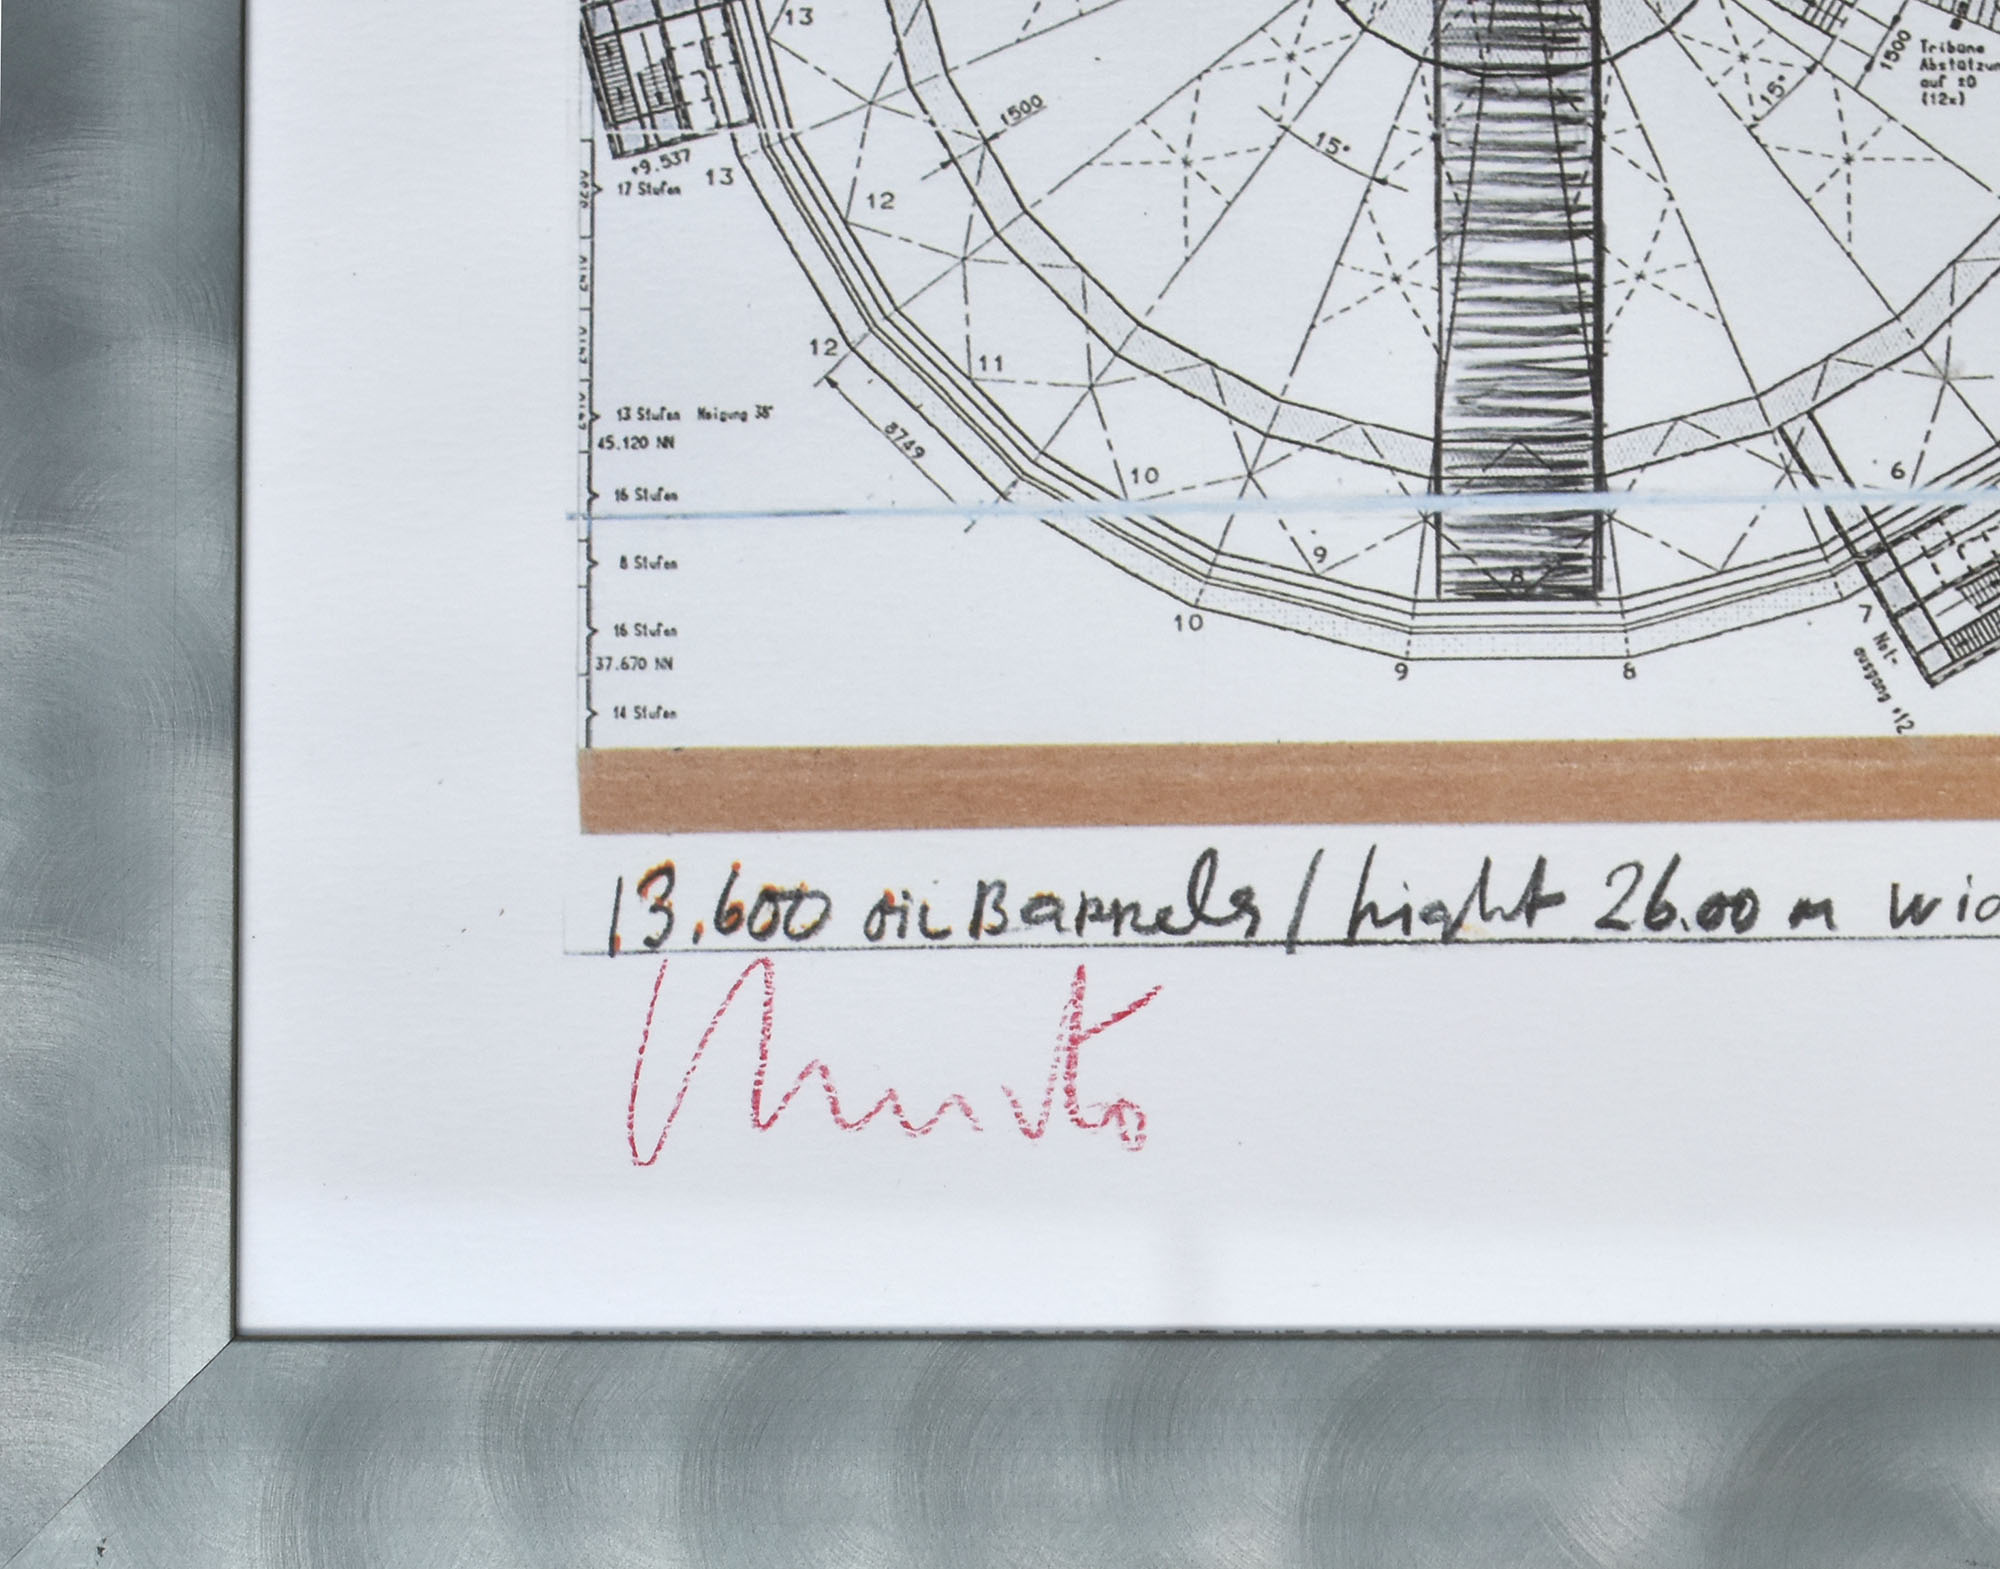 13
1500
Tribüne
Abstützun
auf ±0
(12x)
1500
15°
15°
+9.537
13
17 Stufen
12
12
11
3749
13 Stufen Neigung 38°
45.120 NN
10
6
16 Stufen
9
8 Stufen
8
16 Stufen
10
7
Not-
ausgang +12
37.670 NN
9
8
14 Stufen
13.600 oil Barrels / hight 26.00 m wid
Christo